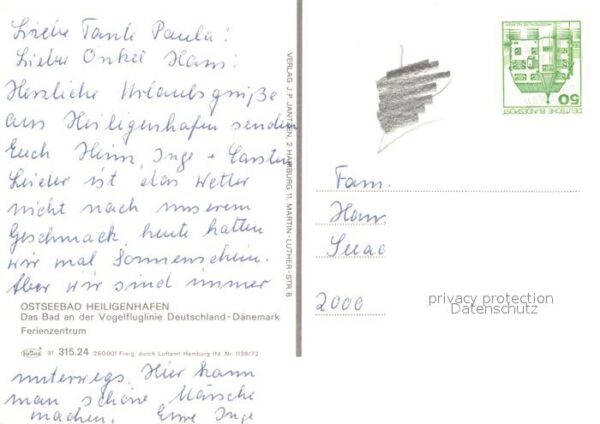 Liebe Tante Paula!
Lieber Onkel Hans!
Herzliche Urlaubsgrüße
aus Heiligenhafen senden
Euch Heinr, Inge + Carsten
Leider ist das Wetter
nicht nach unserem
Geschmack, heute hatten
wir mal Sonnenschein.
Aber wir sind immer
OSTSEEBAD HEILIGENHAFEN
Das Bad an der Vogelfluglinie Deutschland-Dänemark
Ferienzentrum
31. 315.24 260001 Freig. durch Luftamt Hamburg lfd. Nr. 1159/72
unterwegs. Hier kann
man schöne Märsche
machen. Eure Inge
VERLAG J. P. JANTZEN, 2 HAMBURG 11, MARTIN-LUTHER-STR. 8
50
DEUTSCHE BUNDESPOST
Fam.
Hans
2000
privacy protection
Datenschutz